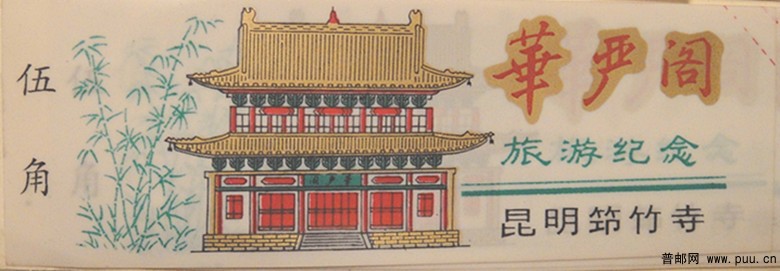 伍角
華严阁
旅游纪念
昆明筇竹寺
普邮网 www.puu.cn